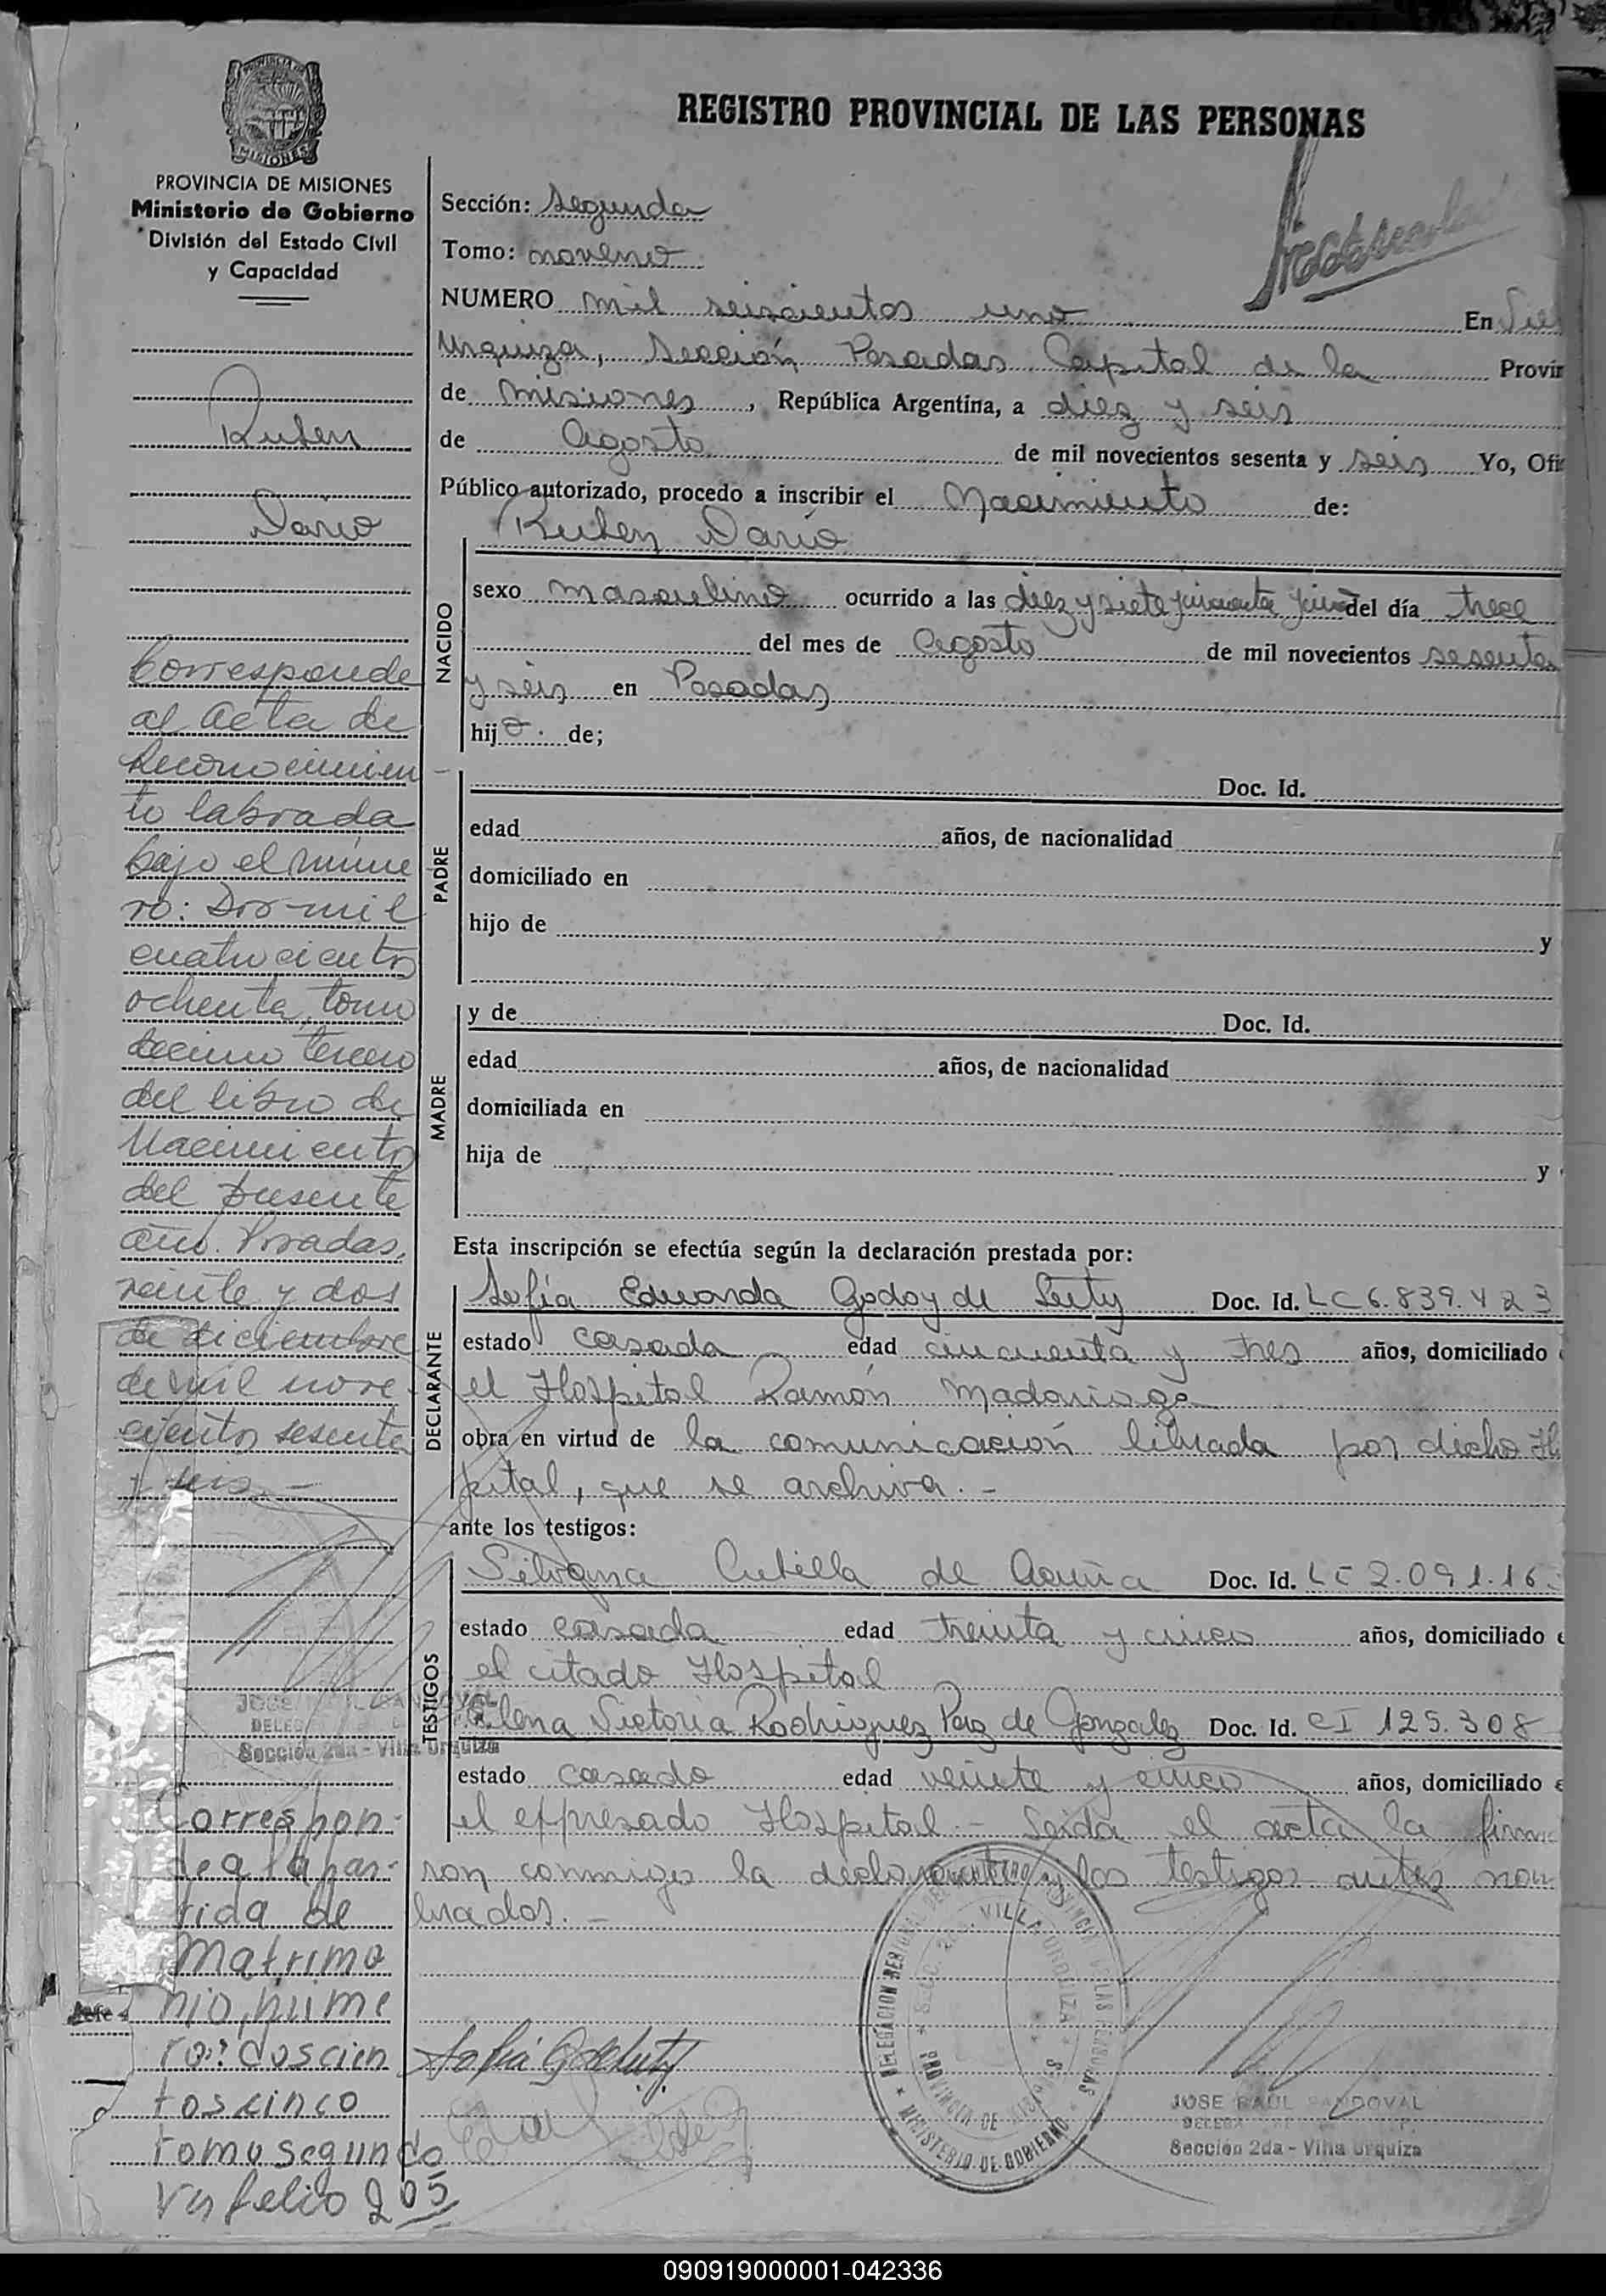 PROVINCIA DE
MISIONES
PROVINCIA DE MISIONES
Ministerio de Gobierno
División del Estado Civil
y Capacidad
REGISTRO PROVINCIAL DE LAS PERSONAS
Sección: Segunda
Tomo: noveno
NUMERO mil seiscientos uno En
Urquiza, Sección Posadas Capital de la Provin
de Misiones, República Argentina, a diez y seis
de Agosto de mil novecientos sesenta y seis Yo, Ofi
Público autorizado, procedo a inscribir el Nacimiento de:
Ruben Dario
NACIDO
sexo masculino ocurrido a las diez y siete del día trece
del mes de Agosto de mil novecientos sesenta
y seis en Posadas
hijo. de;
PADRE
Doc. Id.
edad años, de nacionalidad
domiciliado en
hijo de y
MADRE
y de Doc. Id.
edad años, de nacionalidad
domiciliada en
hija de y
Esta inscripción se efectúa según la declaración prestada por:
DECLARANTE
Sofía Eduarda Godoy de Doc. Id. LC 6.839.423
estado casada edad cincuenta y tres años, domiciliado
el Hospital Ramón Madariaga
obra en virtud de la comunicación librada por dicho Ho
pital, que se archiva. -
ante los testigos:
TESTIGOS
Silvana de Acuña Doc. Id. LC 2.091.16
estado casada edad treinta y cinco años, domiciliado e
el citado Hospital
Elena Victoria Rodriguez Paz de Gonzalez Doc. Id. CI 125.308
estado casado edad veinte y cinco años, domiciliado e
el expresado Hospital - Leída el acta la firma
ron conmigo la declarante y los testigos antes nom
brados. -
Ruben
Dario
Corresponde
al Acta de
Reconocimien
to labrada
bajo el núme
ro: Dos mil
cuatrocientos
ochenta, tomo
decimo tercero
del libro de
Nacimientos
del presente
año. Posadas,
veinte y dos
de diciembre
de mil nove
cientos sesenta
y seis. -
JOSE RAUL SANDOVAL
Sección 2da - Villa Urquiza
Correspon-
de a la par-
tida de
Matrimo
nio, núme
ro: doscien
tos cinco
tomo segundo
Ver folio 205
DELEGACION MINISTERIO DE GOBIERNO
VILLA URQUIZA
PROVINCIA DE MISIONES
JOSE RAUL SANDOVAL
Sección 2da - Villa Urquiza
090919000001-042336